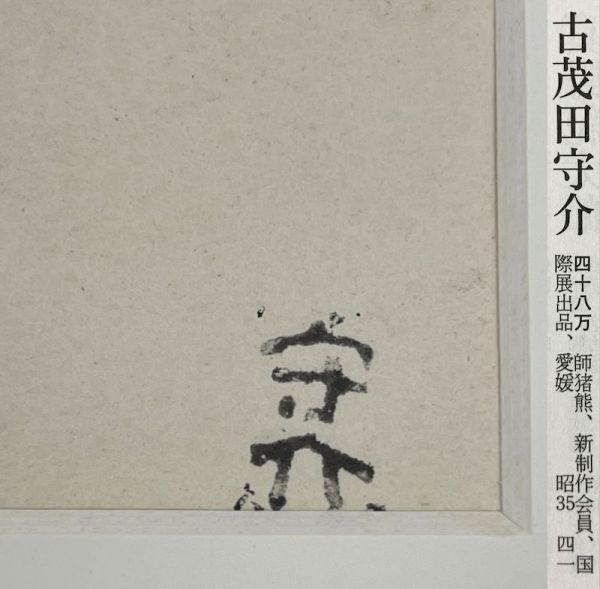 古茂田守介
四十八万 師猪熊、新制作会員、国
際展出品、愛媛 昭35 四一
守介